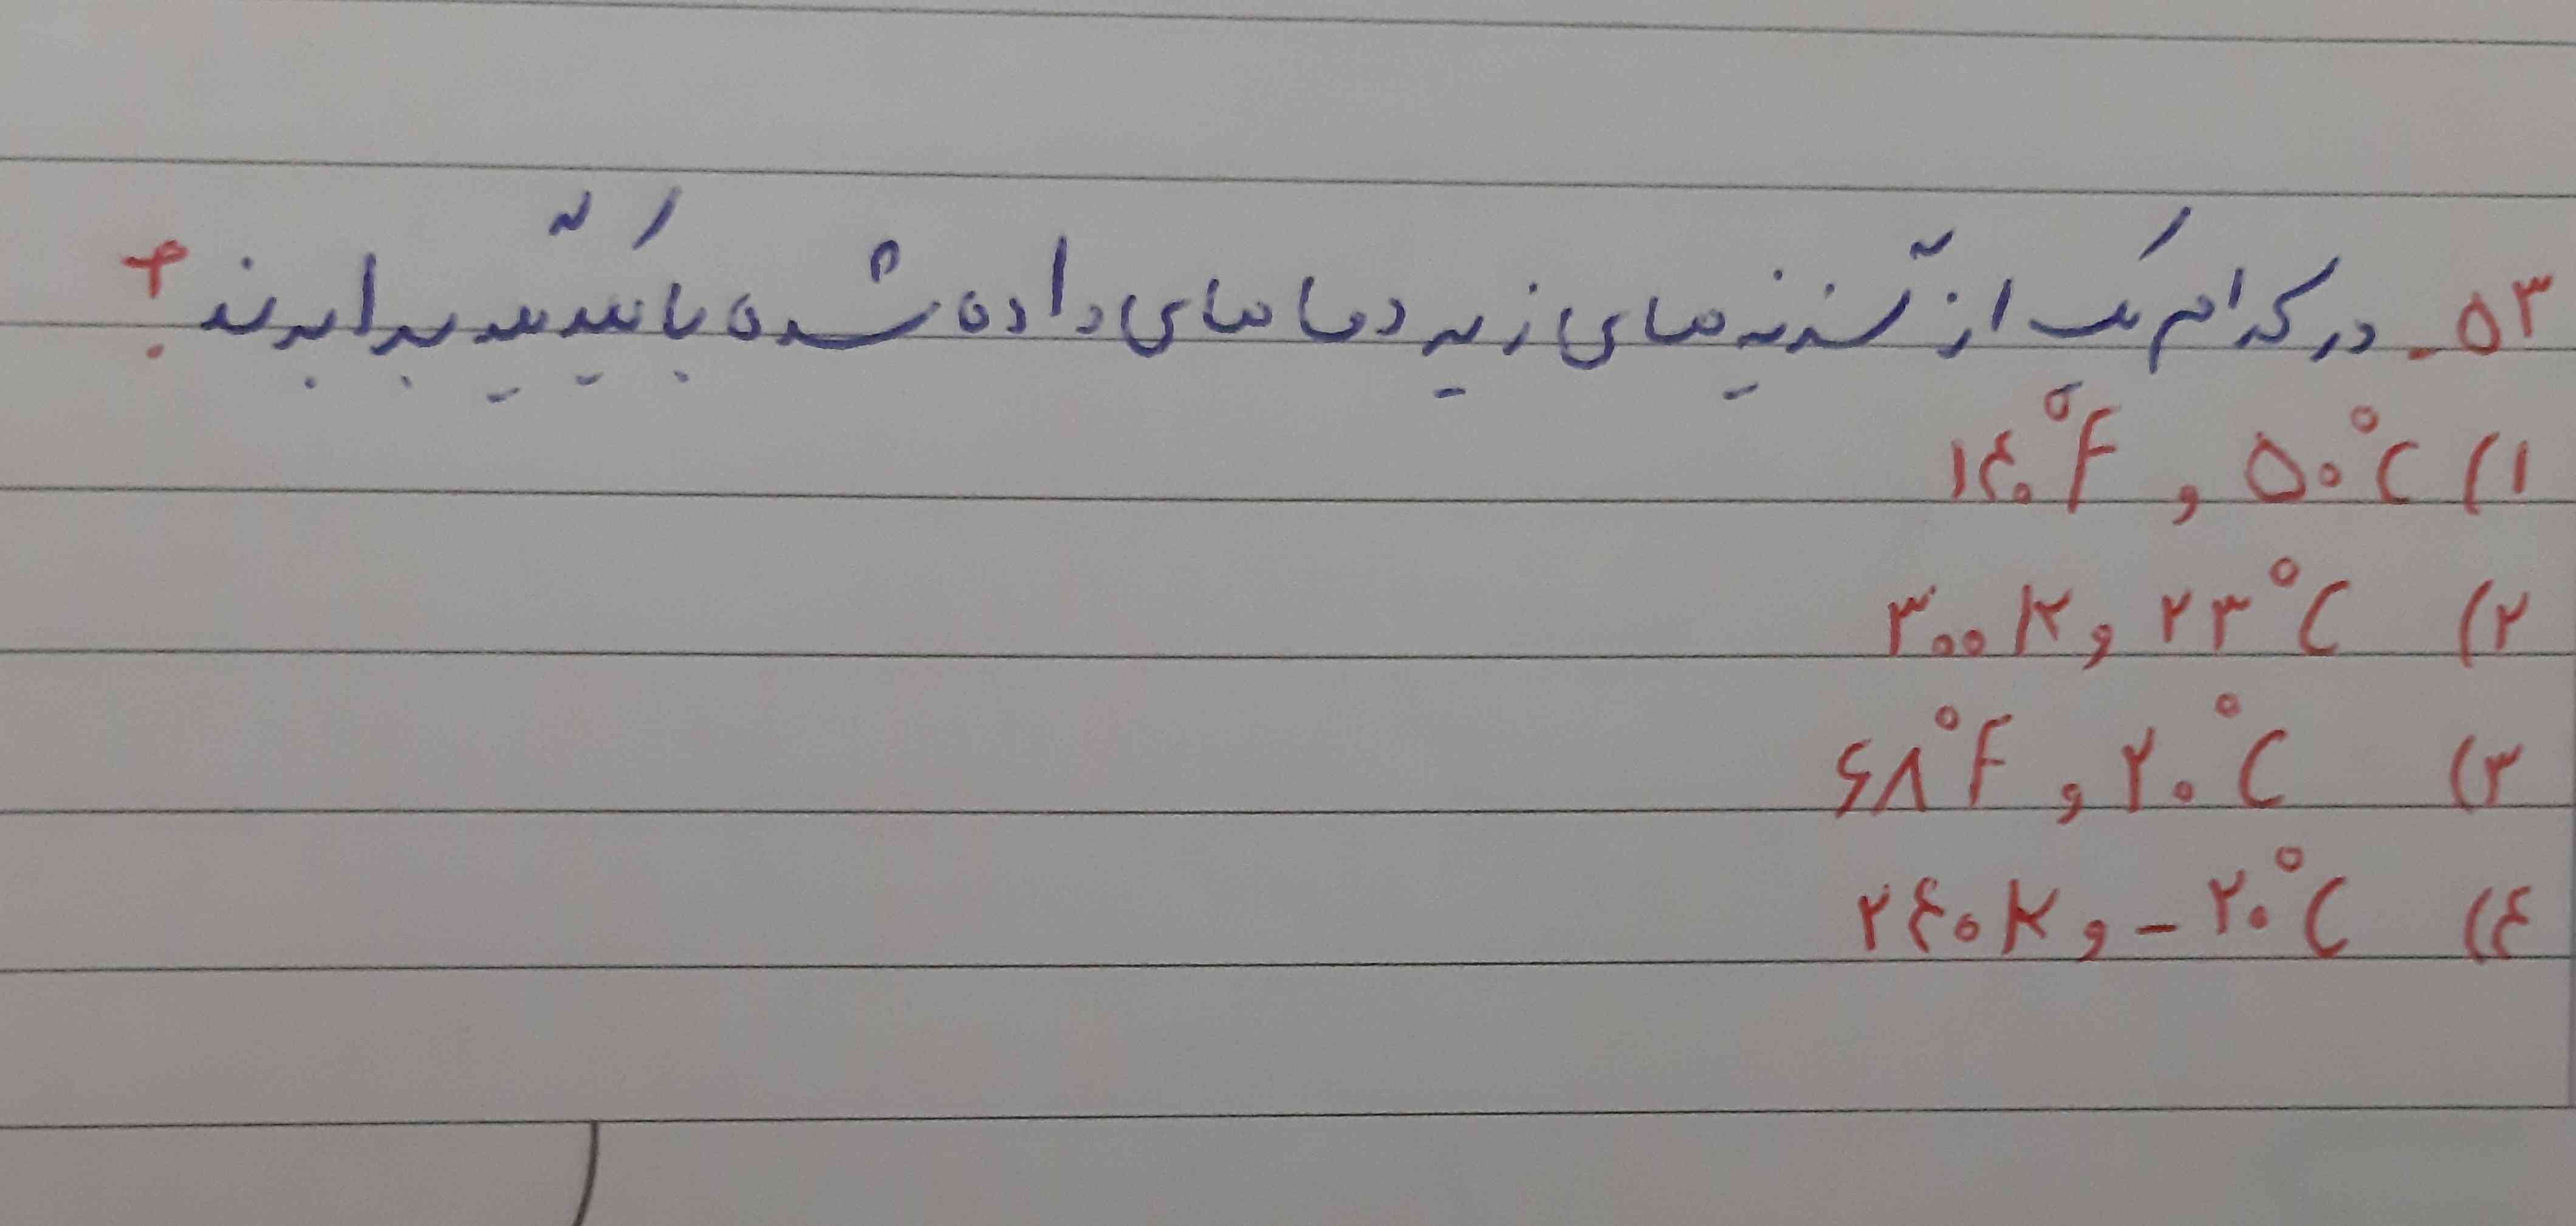 ۵۳- در کدام یک از گزینه‌های زیر دماهای داده شده با یکدیگر برابرند؟
۱) ۵۰°C و ۱۴۰°F
۲) ۲۳°C و ۳۰۰K
۳) ۲۰°C و ۶۸°F
۴) -۲۰°C و ۲۴۰K